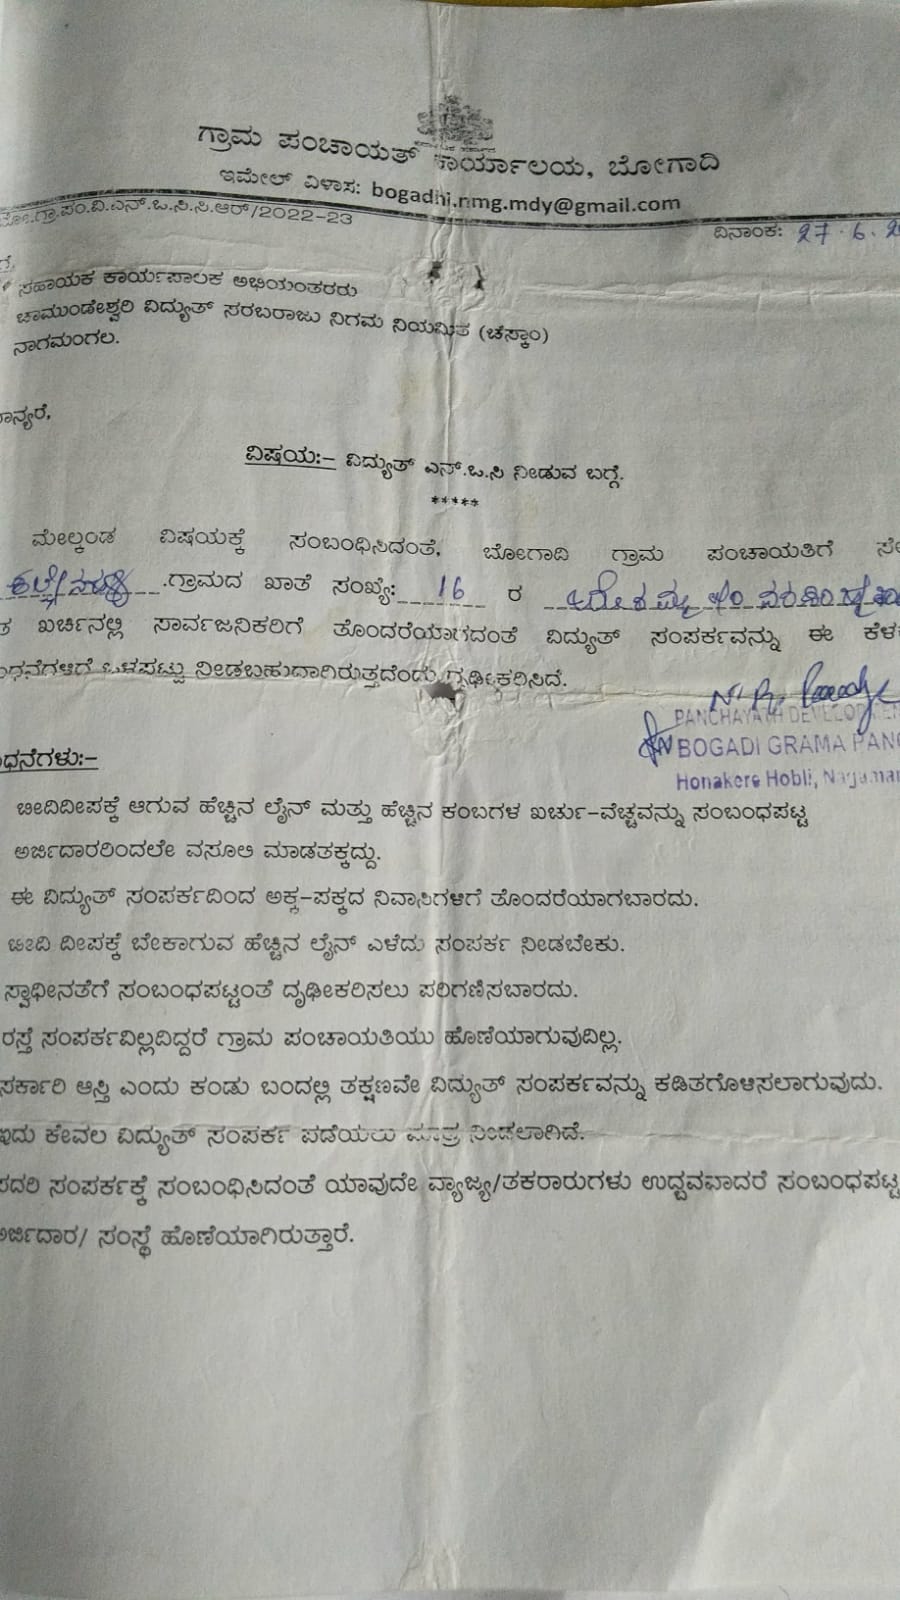 ಗ್ರಾಮ ಪಂಚಾಯತ್ ಕಾರ್ಯಾಲಯ, ಬೋಗಾದಿ
ಇಮೇಲ್ ವಿಳಾಸ: bogadhi.nmg.mdy@gmail.com
ಗ್ರಾ.ಪಂ.ವಿ.ಎನ್.ಒ.ಸಿ.ಸಿ.ಆರ್/2022-23
ದಿನಾಂಕ: 27.6.2
ಸಹಾಯಕ ಕಾರ್ಯಪಾಲಕ ಅಭಿಯಂತರರು
ಚಾಮುಂಡೇಶ್ವರಿ ವಿದ್ಯುತ್ ಸರಬರಾಜು ನಿಗಮ ನಿಯಮಿತ (ಚೆಸ್ಕಾಂ)
ನಾಗಮಂಗಲ.
ಾನ್ಯರೆ,
ವಿಷಯ:- ವಿದ್ಯುತ್ ಎನ್.ಒ.ಸಿ ನೀಡುವ ಬಗ್ಗೆ.
*****
ಮೇಲ್ಕಂಡ ವಿಷಯಕ್ಕೆ ಸಂಬಂಧಿಸಿದಂತೆ, ಬೋಗಾದಿ ಗ್ರಾಮ ಪಂಚಾಯತಿಗೆ ಸೇ
.ಗ್ರಾಮದ ಖಾತೆ ಸಂಖ್ಯೆ: 16 ರ
ತ ಖರ್ಚಿನಲ್ಲಿ ಸಾರ್ವಜನಿಕರಿಗೆ ತೊಂದರೆಯಾಗದಂತೆ ವಿದ್ಯುತ್ ಸಂಪರ್ಕವನ್ನು ಈ ಕೆಳಕ
ಂಧನೆಗಳಿಗೆ ಒಳಪಟ್ಟು ನೀಡಬಹುದಾಗಿರುತ್ತದೆಂದು ದೃಢೀಕರಿಸಿದೆ.
PANCHAYATH DEVELOPMEN
BOGADI GRAMA PANC
Honakere Hobli, Nagaman
ಂಧನೆಗಳು:-
ಬೀದಿದೀಪಕ್ಕೆ ಆಗುವ ಹೆಚ್ಚಿನ ಲೈನ್ ಮತ್ತು ಹೆಚ್ಚಿನ ಕಂಬಗಳ ಖರ್ಚು-ವೆಚ್ಚವನ್ನು ಸಂಬಂಧಪಟ್ಟ
ಅರ್ಜಿದಾರರಿಂದಲೇ ವಸೂಲಿ ಮಾಡತಕ್ಕದ್ದು.
ಈ ವಿದ್ಯುತ್ ಸಂಪರ್ಕದಿಂದ ಅಕ್ಕ-ಪಕ್ಕದ ನಿವಾಸಿಗಳಿಗೆ ತೊಂದರೆಯಾಗಬಾರದು.
ಬೀದಿ ದೀಪಕ್ಕೆ ಬೇಕಾಗುವ ಹೆಚ್ಚಿನ ಲೈನ್ ಎಳೆದು ಸಂಪರ್ಕ ನೀಡಬೇಕು.
ಸ್ವಾಧೀನತೆಗೆ ಸಂಬಂಧಪಟ್ಟಂತೆ ದೃಢೀಕರಿಸಲು ಪರಿಗಣಿಸಬಾರದು.
ರಸ್ತೆ ಸಂಪರ್ಕವಿಲ್ಲದಿದ್ದರೆ ಗ್ರಾಮ ಪಂಚಾಯತಿಯು ಹೊಣೆಯಾಗುವುದಿಲ್ಲ.
ಸರ್ಕಾರಿ ಆಸ್ತಿ ಎಂದು ಕಂಡು ಬಂದಲ್ಲಿ ತಕ್ಷಣವೇ ವಿದ್ಯುತ್ ಸಂಪರ್ಕವನ್ನು ಕಡಿತಗೊಳಿಸಲಾಗುವುದು.
ಇದು ಕೇವಲ ವಿದ್ಯುತ್ ಸಂಪರ್ಕ ಪಡೆಯಲು ಮಾತ್ರ ನೀಡಲಾಗಿದೆ.
ಸದರಿ ಸಂಪರ್ಕಕ್ಕೆ ಸಂಬಂಧಿಸಿದಂತೆ ಯಾವುದೇ ವ್ಯಾಜ್ಯ/ತಕರಾರುಗಳು ಉದ್ಭವವಾದರೆ ಸಂಬಂಧಪಟ್ಟ
ಅರ್ಜಿದಾರ/ ಸಂಸ್ಥೆ ಹೊಣೆಯಾಗಿರುತ್ತಾರೆ.